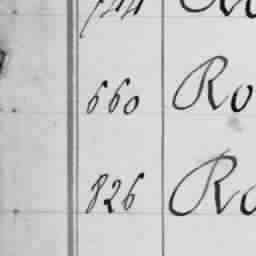 660 Ro
826 Ro